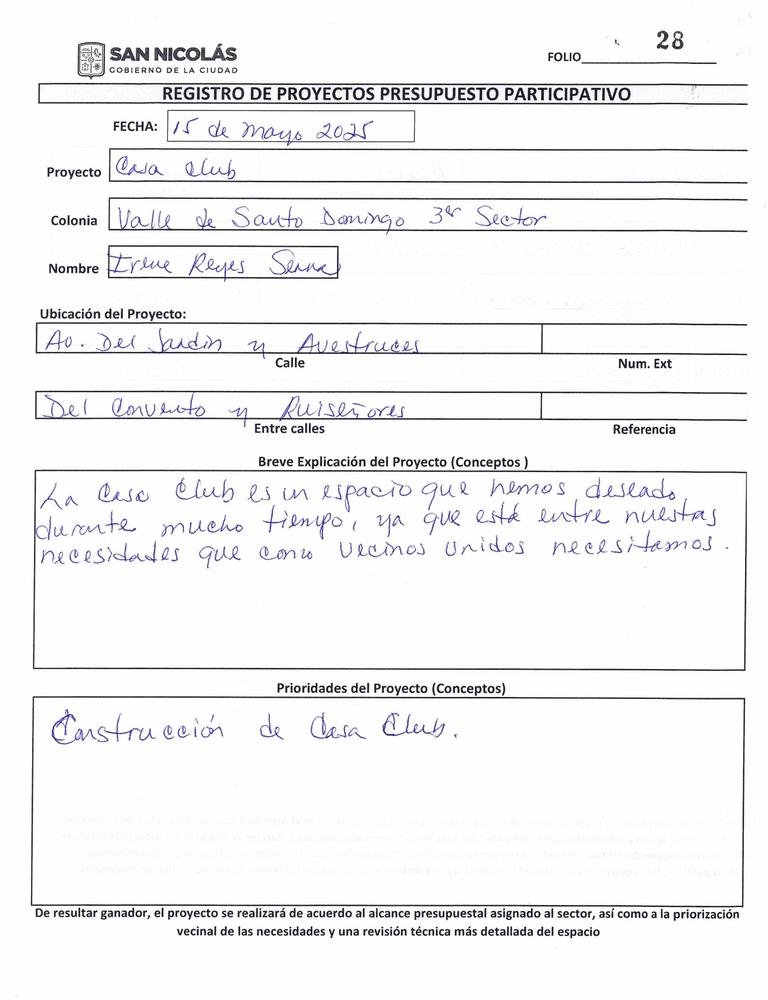 SAN NICOLÁS
GOBIERNO DE LA CIUDAD
FOLIO 28
REGISTRO DE PROYECTOS PRESUPUESTO PARTICIPATIVO
FECHA: 15 de mayo 2025
Proyecto Casa Club
Colonia Valle de Santo Domingo 3er Sector
Nombre Irene Reyes Serna
Ubicación del Proyecto:
Av. Del Jardin y Avestruces
Calle Num. Ext
Del Convento y Ruiseñores
Entre calles Referencia
Breve Explicación del Proyecto (Conceptos )
La Casa Club es un espacio que hemos deseado
durante mucho tiempo, ya que está entre nuestras
necesidades que como Vecinos Unidos necesitamos.
Prioridades del Proyecto (Conceptos)
Construcción de Casa Club.
De resultar ganador, el proyecto se realizará de acuerdo al alcance presupuestal asignado al sector, así como a la priorización
vecinal de las necesidades y una revisión técnica más detallada del espacio